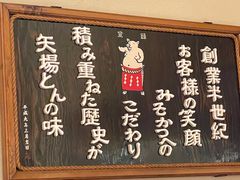 創業半世紀
お客様の笑顔
みそかつへの
こだわり
積み重ねた歴史が
矢場とんの味